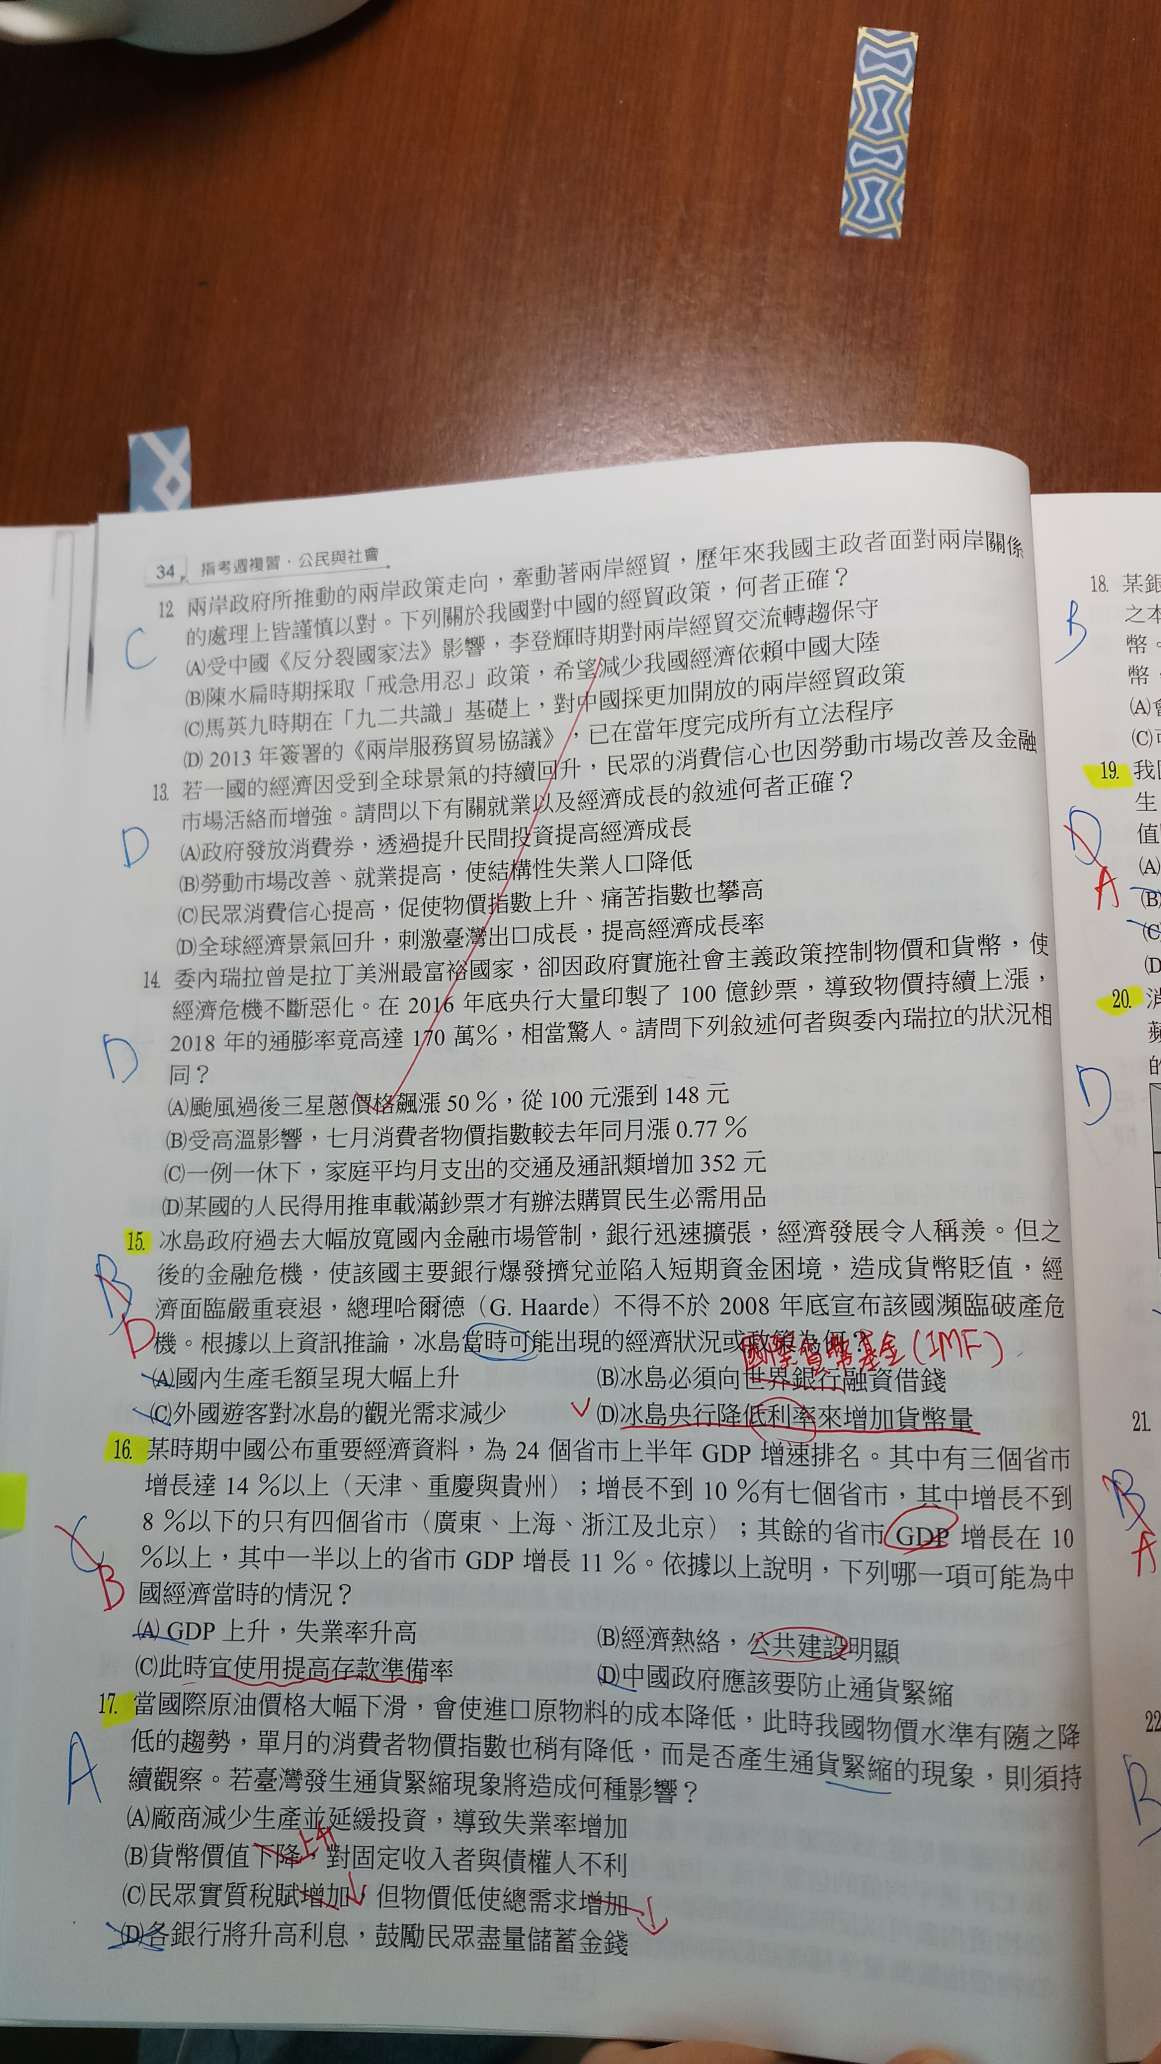 34 指考週複習．公民與社會
12. 兩岸政府所推動的兩岸政策走向，牽動著兩岸經貿，歷年來我國主政者面對兩岸關係
的處理上皆謹慎以對。下列關於我國對中國的經貿政策，何者正確？
C
(A)受中國《反分裂國家法》影響，李登輝時期對兩岸經貿交流轉趨保守
(B)陳水扁時期採取「戒急用忍」政策，希望減少我國經濟依賴中國大陸
(C)馬英九時期在「九二共識」基礎上，對中國採更加開放的兩岸經貿政策
(D) 2013 年簽署的《兩岸服務貿易協議》，已在當年度完成所有立法程序
13. 若一國的經濟因受到全球景氣的持續回升，民眾的消費信心也因勞動市場改善及金融
市場活絡而增強。請問以下有關就業以及經濟成長的敘述何者正確？
D
(A)政府發放消費券，透過提升民間投資提高經濟成長
(B)勞動市場改善、就業提高，使結構性失業人口降低
(C)民眾消費信心提高，促使物價指數上升、痛苦指數也攀高
(D)全球經濟景氣回升，刺激臺灣出口成長，提高經濟成長率
14. 委內瑞拉曾是拉丁美洲最富裕國家，卻因政府實施社會主義政策控制物價和貨幣，使
經濟危機不斷惡化。在 2016 年底央行大量印製了 100 億鈔票，導致物價持續上漲，
2018 年的通膨率竟高達 170 萬％，相當驚人。請問下列敘述何者與委內瑞拉的狀況相
D
同？
(A)颱風過後三星蔥價格飆漲 50 ％，從 100 元漲到 148 元
(B)受高溫影響，七月消費者物價指數較去年同月漲 0.77 ％
(C)一例一休下，家庭平均月支出的交通及通訊類增加 352 元
(D)某國的人民得用推車載滿鈔票才有辦法購買民生必需用品
15. 冰島政府過去大幅放寬國內金融市場管制，銀行迅速擴張，經濟發展令人稱羨。但之
後的金融危機，使該國主要銀行爆發擠兌並陷入短期資金困境，造成貨幣貶值，經
B
濟面臨嚴重衰退，總理哈爾德（G. Haarde）不得不於 2008 年底宣布該國瀕臨破產危
D
機。根據以上資訊推論，冰島當時可能出現的經濟狀況或政策為何？
國際貨幣基金(IMF)
(A)國內生產毛額呈現大幅上升 (B)冰島必須向世界銀行融資借錢
(C)外國遊客對冰島的觀光需求減少 (D)冰島央行降低利率來增加貨幣量
16. 某時期中國公布重要經濟資料，為 24 個省市上半年 GDP 增速排名。其中有三個省市
增長達 14 ％以上（天津、重慶與貴州）；增長不到 10 ％有七個省市，其中增長不到
8 ％以下的只有四個省市（廣東、上海、浙江及北京）；其餘的省市 GDP 增長在 10
C
％以上，其中一半以上的省市 GDP 增長 11 ％。依據以上說明，下列哪一項可能為中
B
國經濟當時的情況？
(A) GDP 上升，失業率升高 (B)經濟熱絡，公共建設明顯
(C)此時宜使用提高存款準備率 (D)中國政府應該要防止通貨緊縮
17. 當國際原油價格大幅下滑，會使進口原物料的成本降低，此時我國物價水準有隨之降
低的趨勢，單月的消費者物價指數也稍有降低，而是否產生通貨緊縮的現象，則須持
A
續觀察。若臺灣發生通貨緊縮現象將造成何種影響？
(A)廠商減少生產並延緩投資，導致失業率增加
上升
(B)貨幣價值下降，對固定收入者與債權人不利
(C)民眾實質稅賦增加，但物價低使總需求增加
(D)各銀行將升高利息，鼓勵民眾盡量儲蓄金錢
18. 某銀
之本
B
幣。
幣，
(A)
(C)可
19. 我國
生
D
值
(A)
A
(B)
(C)
(D)
20. 消
蘋
的
D
21.
B
A
22
B